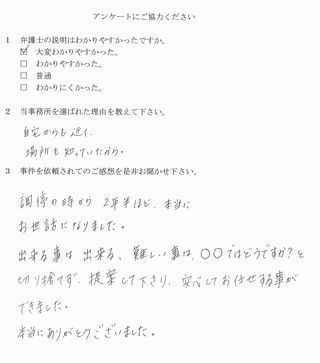 アンケートにご協力ください
1 弁護士の説明はわかりやすかったですか。
☑ 大変わかりやすかった。
☐ わかりやすかった。
☐ 普通
☐ わかりにくかった。
2 当事務所を選ばれた理由を教えて下さい。
自宅からも近く、
場所も知っていたから。
3 事件を依頼されてのご感想を是非お聞かせ下さい。
調停の時から 2年半ほど、本当に
お世話になりました。
出来る事は 出来る、難しい事は、○○ではどうですか?と
切り捨てず、提案して下さり、安心してお任せする事が
できました。
本当にありがとうございました。